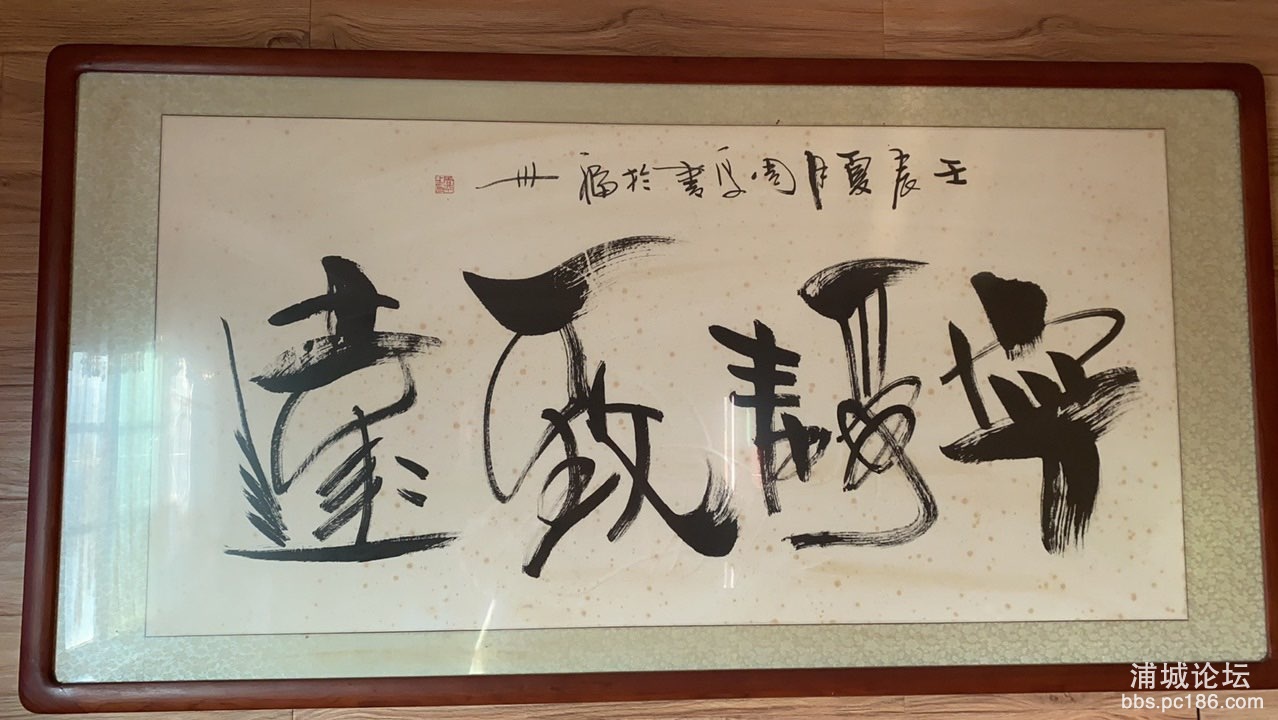 壬辰夏月周孚書於福州
寧靜致遠
浦城论坛
bbs.pc186.com